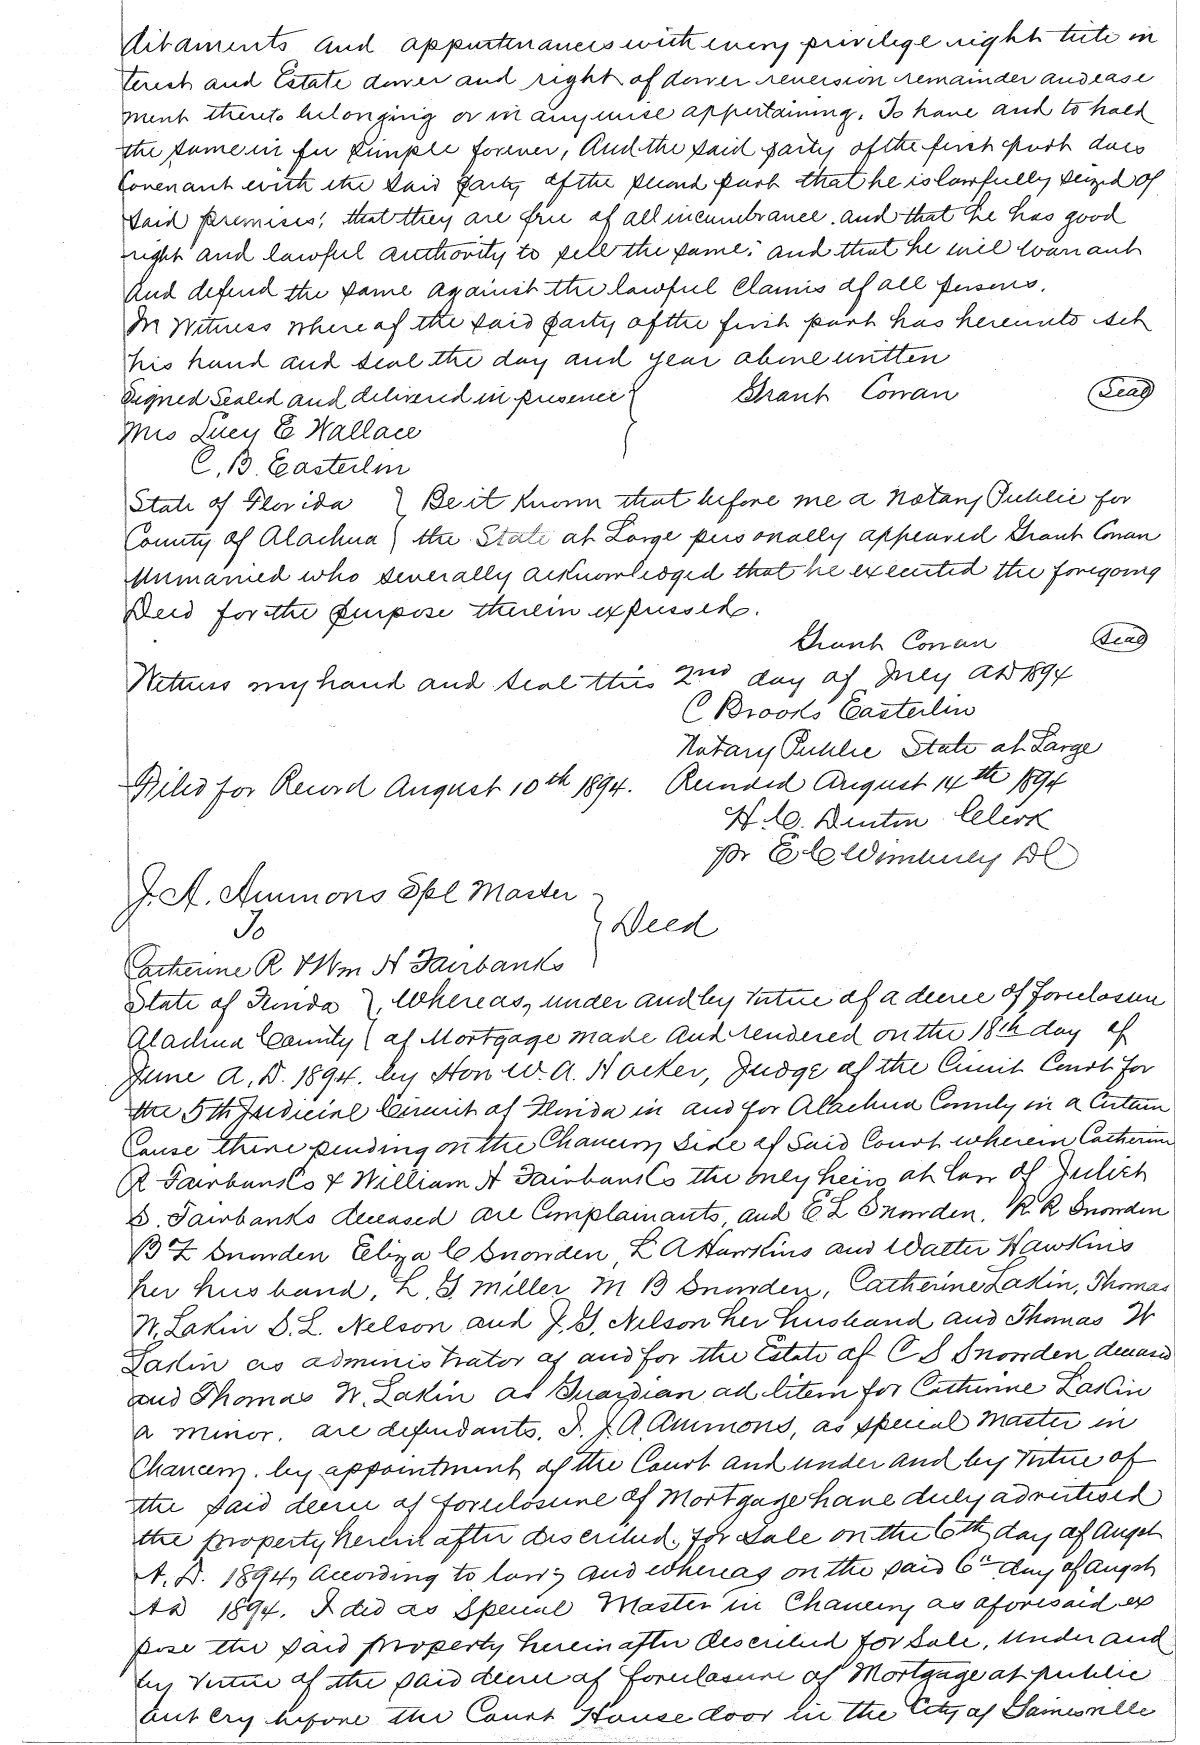 ditaments and appurtenances with every privilege right title in
terest and Estate dower and right of dower reversion remainder and ease
ment thereto belonging or in anywise appertaining. To have and to hold
the same in fee simple forever, And the said party of the first part does
Covenant with the said party of the second part that he is lawfully seized of
said premises; that they are free of all incumbrance. and that he has good
right and lawful authority to sell the same; and that he will warrant
and defend the same against the lawful claims of all persons.
In Witness where of the said party of the first part has hereunto set
his hand and seal the day and year above written
Signed Sealed and delivered in presence } Grant Cowan Seal
Mrs Lucy E Wallace
C. B. Easterlin
State of Florida } Be it Known that before me a Notary Public for
County of Alachua } the State at Large personally appeared Grant Cowan
Unmarried who severally acknowledged that he executed the foregoing
Deed for the purpose therein expressed.
Grant Cowan Seal
Witness my hand and seal this 2nd day of July AD 1894
C Brooks Easterlin
Notary Public State at Large
Filed for Record August 10th 1894. Recorded August 14th 1894
H. C. Denton Clerk
pr E C Wimberley DC
J. A. Ammons Spl Master
To } Deed
Catherine R & Wm H Fairbanks
State of Florida }, Whereas, under and by virtue of a decree of foreclosure
Alachua County } of Mortgage made and rendered on the 18th day of
June A. D. 1894. by Hon W. A. Hocker, Judge of the Circuit Court for
the 5th Judicial Circuit of Florida in and for Alachua County in a Certain
Cause there pending on the Chancery Side of Said Court wherein Catherine
R Fairbanks & William H Fairbanks the only heirs at law of Juliet
S. Fairbanks deceased are Complainants, and E L Snowden, R R Snowden
B F Snowden Eliza C Snowden, L A Hawkins and Walter Hawkins
her husband, L. G. Miller M B Snowden, Catherine Lakin, Thomas
W. Lakin S. L. Nelson and J. G. Nelson her husband and Thomas W
Lakin as administrator of and for the Estate of C S Snowden deceased
and Thomas W. Lakin as Guardian ad litem for Catherine Lakin
a minor. are defendants. I. J. A. Ammons, as special Master in
Chancery. by appointment of the Court and under and by virtue of
the said decree of foreclosure of Mortgage have duly advertised
the property herein after described, for Sale on the 6th day of Augst
A. D. 1894, according to law; and whereas on the said 6th day of Augst
AD 1894. I did as Special Master in Chancery as aforesaid ex
pose the said property herein after described for Sale. Under and
by virtue of the said decree of foreclosure of Mortgage at public
out cry before the Court House door in the City of Gainesville